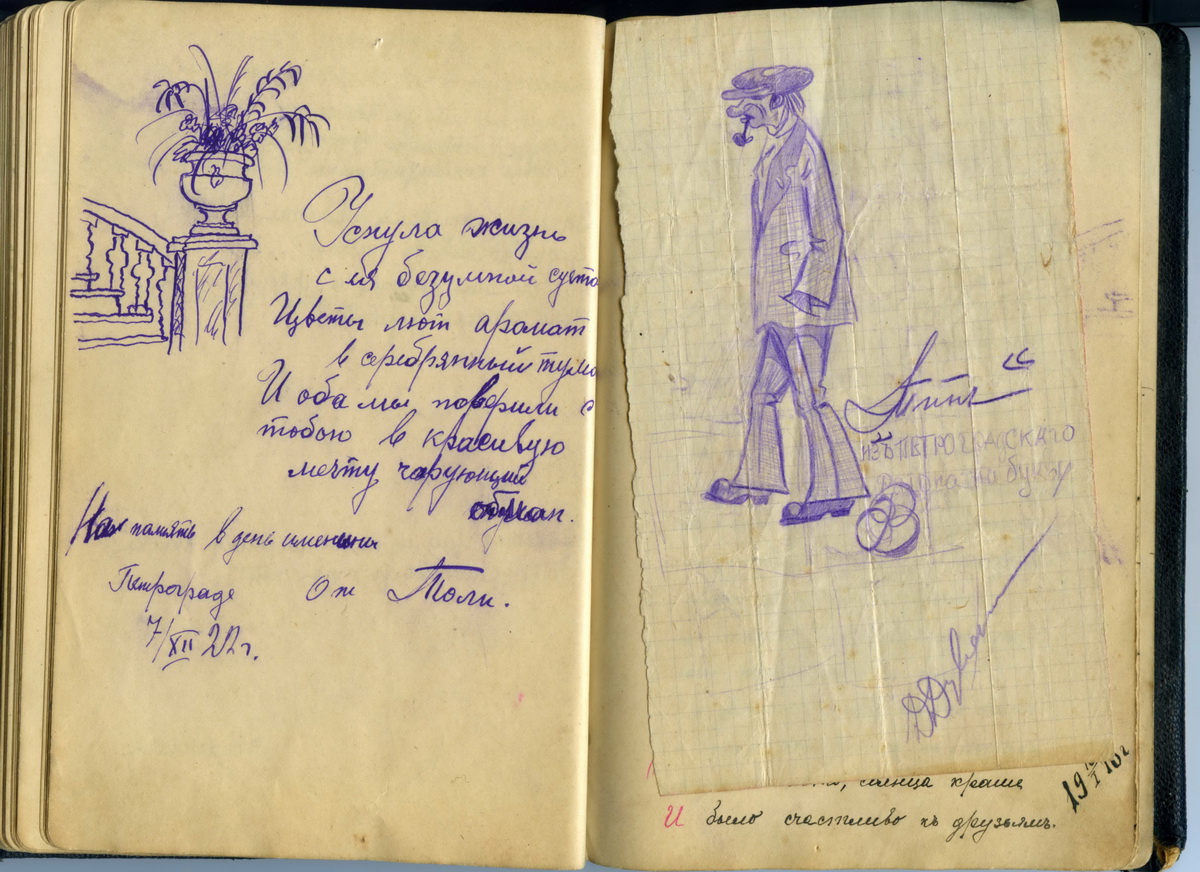 Уснула жизнь
с ея безумной сует
Цветы льют аромат
в серебрянный тума
И оба мы поверили с
тобою в красивую
мечту чарующий
обман.
На память в день именин
Петроград
От Толи.
7/XII 22 г.
Типъ
изъ ПЕТРОГРАДСКАГО
букву
солнца краше
И было счастливо къ друзьямъ.
19 I 10 г